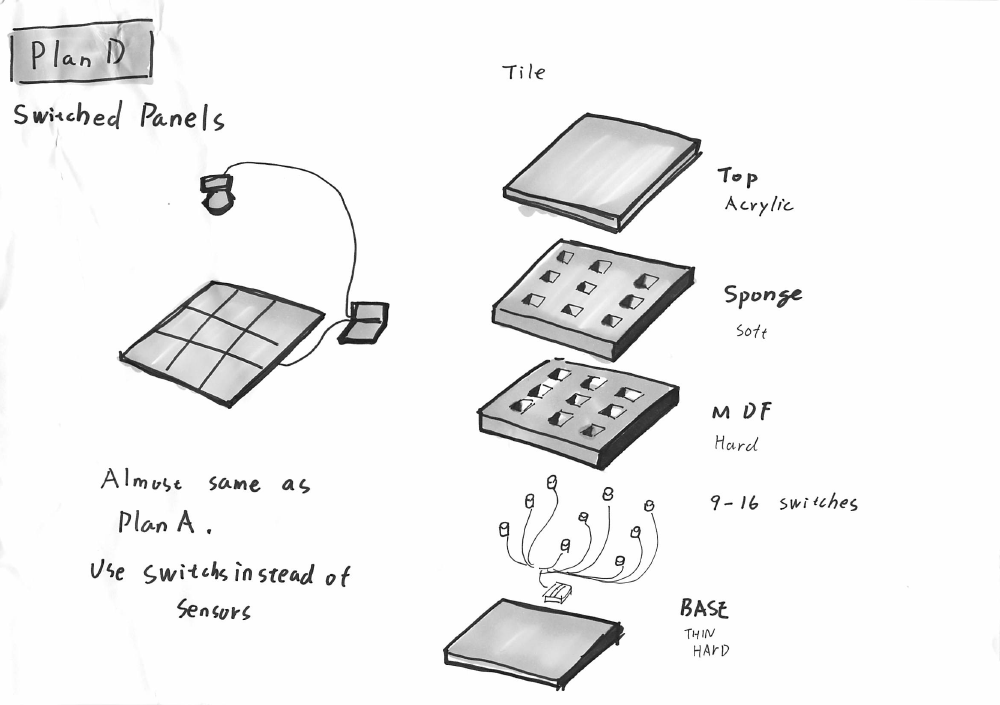 Plan D
Switched Panels
Almost same as
Plan A.
Use switchs instead of
sensors
Tile
Top
Acrylic
Sponge
Soft
MDF
Hard
9-16 switches
BASE
THIN
HARD